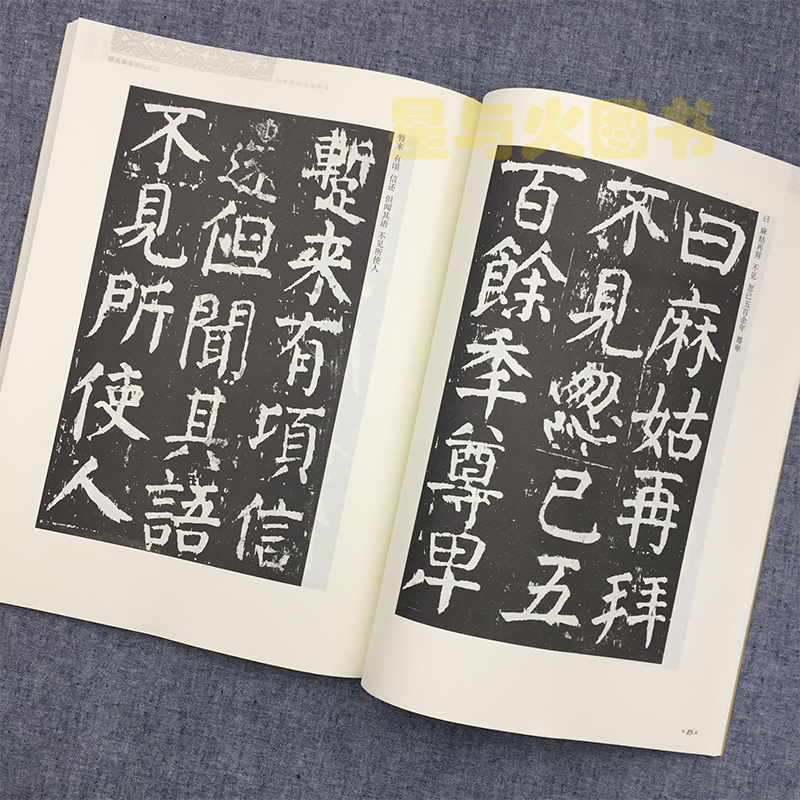 星与火图书
颜真卿麻姑仙坛记
暂来 有顷 信还 但闻其语 不见所使人
蹔来有頃信
還但聞其語
不見所使人
曰 麻姑再拜 不见 忽已五百余年 尊卑
曰麻姑再拜
不見忽已五
百餘年尊卑
85